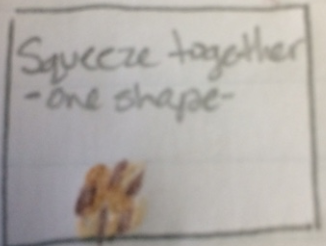 Squeeze together
-one shape-